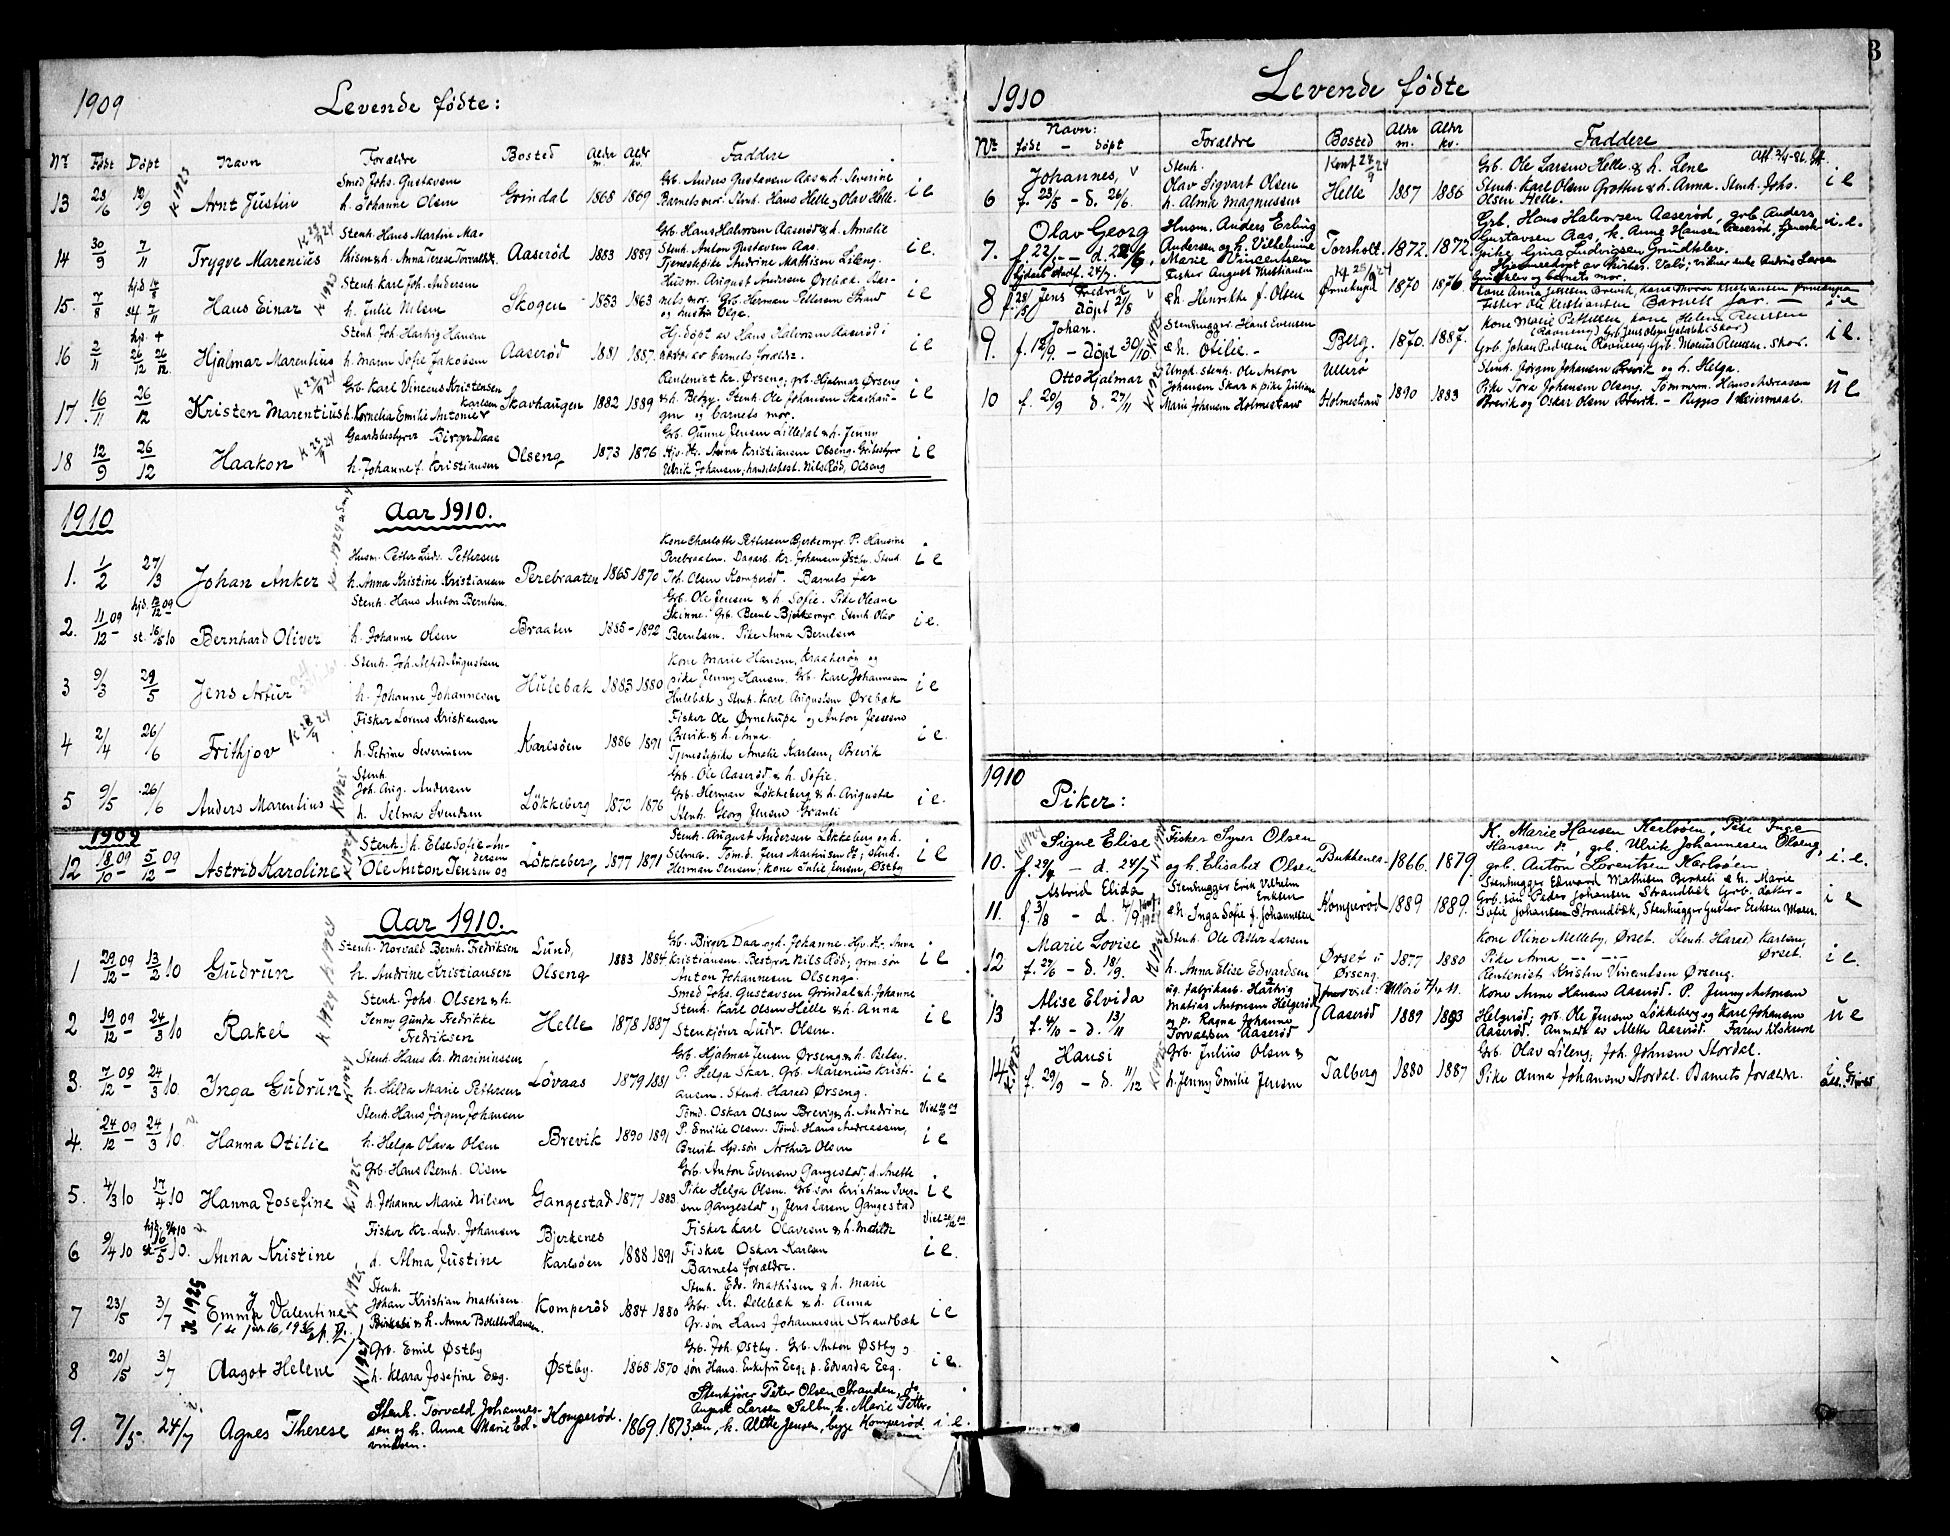 1909 Levende fødte:
Nr Født Døpt Navn Forældre Bosted Alder m. Aldr kv. Faddere
13 28/6 12/9 K 1923 Arnt Justin Smed Johs. Gustavsen h. Johanne Olsen Grindal 1868 1869 Grb. Anders Gustavsen Aas & h. Severine
Barnets mor. Stenh. Hans Helle og Olav Helle. i e
14 30/9 7/11 Trygve Marenius Stenh. Hans Martin Ma-
thisen & h. Anna Terese Torvalds. Aaserød 1883 1889 Grb. Hans Halvorsen Aaserød & h. Amalie
Stenh. Anton Gustavsen Aas.
Tjenestepike Andrine Mathisen Lileng. i e.
15. 7/8 hjd 14/8 st 7/11 Hans Einar K 1923 Stenh. Karl Joh. Andersen
h. Julie Nilsen Skogen 1853 1863 Husm. August Andersen Ørebak. Bar-
nets mor. Grb. Herman Pettersen Skaud
og hustru Olga. i e
16 2/11 hjd. + 26/12 26/12 Hjalmar Marentius Stenh. Joh. Hartvig Hansen
h. Maren Sofie Jakobsen Aaserød 1881 1887. Hj. døpt av Hans Halvorsen Aaserød i
barnets forældre. i e
17. 16/11 26/12 Kristen Marentius Grb. Karl Vincens Kristensen
h. Kornelia Emilie Antonie Karlsen Skavhaugen 1882 1889 Rentenist Kr. Ørseng; grb. Hjalmar Ørseng
& h. Betsy. Stenh. Ole Johansen Skavhau-
gen og barnets mor. i e
18 12/9 26/12 Haakon K 28/9 24 Gaardsbestyrer Birger Daae
h. Johanne f. Kristiansen Olseng 1873 1876 Grb. Gunne Jensen Lilledal & h. Jenny
Hjv. Fr. Anna Kristiansen Olseng. Grdbestyrer
Ulrik Johansen; handelsbest. Nils Rød, Olseng i e
1910 Aar 1910.
1. 1/2 27/3 Johan Anker Husm. Petter Ludv. Pettersen
h. Anna Kristine Kristiansen Perebraaten 1865 1870 Kone Charlotte Pettersen Bjerkemyr. P. Hansine
Perebraaten. Dagarb. Kr. Johansen Østby. Stenh.
Joh. Olsen Komperød. Barnets far i e
2. 11/12 09 hjd. 12/12 09 st. 16/5 10 Bernhard Oliver Stenh. Hans Anton Berntsen.
h. Johanne Olsen Braaten 1885 - 1892 Grb. Ole Jensen & h. Sofie. Pike Oleane
Skinne. Grb. Bernt Bjerkemyr. Stenh. Olav
Berntsen. Pike Anna Berntsen i e.
3 9/3 29/5 Jens Artur Stenh. Joh. Alfred Augustsen
h. Johanne Johannesen Hulebak 1883 1880 Kone Marie Hansen, Kraakerøy og
pike Jenny Hansen. Grb. Karl Johannesen
Hulebak og Stenh. Karl Augustsen Ørebak i e
4 2/4 26/6 Frithjov K 28/9 24 Fisker Lorens Kristiansen
h. Petrine Severinsen Karlsøen 1886 1891 Fisker Ole Ørnekupa og Anton Jensen
Brevik & h. Anna.
Tjenestepike Amalie Karlsen, Brevik i e.
5 9/5 26/6 Anders Marentius K 1925 Stenh.
Joh. Aug. Andersen
h. Selma Svendsen Løkkeberg 1872 1876 Grb. Ole Aaserød & h. Sofie.
Grb. Herman Løkkeberg & h. Augusta
Stenh. Georg Jensen Graneli i e.
1909
12 18/10 09 5/12 09 Astrid Karoline K 1924 Stenh. h. Else Sofie An-
dersen
Ole Anton Jensen og Løkkeberg, 1877 1871 Stenh. August Andersen Løkkeberg og h.
Selma. Tømd. Jens Martinsen Do; Stenh.
Herman Jensen; Kone Julie Jensen, Østby i e
Aar 1910.
1 29/12 09 13/2 10 Gudrun K 1924 Stenh. Norvald Bernh. Fredriksen
h. Andrine Kristiansen Lund, Olseng 1883 1884 Grb. Birger Daa og h. Johanne. Hjv. Fr. Anna
Kristiansen. Bestyrer Nils Rød; grm. søn
Anton Johannesen Olseng. i e
2 19/12 09 24/3 10 Rakel K 1924 Stenh. Johs. Olsen & h.
Jenny Gunda Fredrikke
Fredriksen Helle 1878 1887 Smed Johs. Gustavsen Grindal & h. Johanne
Stenh. Karl Olsen Helle & h. Anna
Stenkjører Ludv. Olsen. i e
3. 7/12 09 24/3 10. Inga Gudrun K 1924 Stenh. Hans Kr. Mariniussen
h. Helda Marie Pettersen Løvaas 1879 1881 Grb. Hjalmar Jensen Ørseng & h. Betsy.
P. Helga Skar. Grb. Marenius Kristi-
ansen. Stenh. Harald Ørseng. i e
4. 24/12 09 24/3 10. Hanna Otilie Stenh. Hans Jørgen Johansen
h. Helga Olava Olsen Brevik 1890 1891 Tømd. Oskar Olsen Brevig & h. Andrine
P. Emilie Olsen. Tømd. Hans Andreassen,
Brevik Hjv. søn Arthur Olsen i e
5. 4/3 10 17/4 10 Hanna Josefine K 1925 Grb. Hans Bernh. Olsen
h. Johanne Marie Nilsen Gangestad 1877 1883 Grb. Anton Evensen Gangestad, d. Anette
Pike Helga Olsen. Grb. søn Kristian Iver-
sen Gangestad og Jens Larsen Gangestad i e
6 9/4 10 16/5 10. Anna Kristine Fisker Kr. Ludv. Johansen
d. Alma Justine Bjerkenes
Karlsøen 1888 1891 Fisker Karl Olavesen & h. Matilde
Fisker Oskar Karlsen
Barnets forældre. i e.
7 23/5 3/7 K 1925 Emma Valentine K 1925 Stenh.
Johan Kristian Mathisen
Birkeli & h. Anna Bolette Hansen. Komperød 1884 1880 Stenh. Edv. Mathisen & h. Marie
Grbr. Kr. Lelebak & h. Anna
Gr. søn Hans Johannesen Strandbæk i e
8 20/5 3/7 Aagot Helene K 1924 Grb. Emil Østby
h. Klara Josefine Eeg. Østby. 1868 1870 Grb. Joh. Østby. Grb. Anton Østby &
søn Hans. Enkefru Eeg; p. Edvarda Eeg. i e.
9. 7/5 24/7 Agnes Therese Stenh. Torvald Johannes-
sen og h. Anna Marie Ed-
vindsen. Komperød. 1869. 1873. Stenkjører Peter Olsen Stranden, do
August Larsen Salbu, k. Marie Petter-
sen, k. Alette Jensen, begge Komperød i e.
1910 Levende fødte 3
Nr. Navn: født - døpt Forældre Bosted Aldr m. Aldr kv. Faddere
6 Johannes,
f. 23/5 - d. 26/6. Stenh.
Olav Sigvart Olsen
h. Alma Magnussen Konf. 28/9 24
Helle 1887 1886 Grb. Ole Larsen Helle & h. Lene
Stenh. Karl Olsen Grotten & h. Anna. Stenh. Johs.
Olsen Helle. i e
7. Olav Georg
f. 22/5 - d. 26/6. Husm. Anders Erling
Andersen og h. Vilhelmine
Marie Vincentsen Torsholt. 1872. 1872. Grb. Hans Halvorsen Aaserød, grb. Anders
Gustavsen Aas, k. Anne Hansen Aaserød, tjeneste
pike Gina Ludvigsen Grundklev. i. e.
8 Jens Fredrik
f. 28/5 døpt 21/8 Fisker August Kristiansen
& h. Henrikke f. Olsen Kf 28/9 24
Ørnekupa 1870 1876. Kone Anna Jensen Brevik, kone Thora Kristiansen Ørnekupa
Fisker Ole Kristiansen Barnets far. i e
9. Johan.
f. 18/9. - Døpt 30/10 K 1925 Stenhugger. Hans Evensen
og
& h. Otilie. - Berg. 1870. 1887. Kone Marie Pettersen kone Helene Reiersen
(Rønneng) Grb. Jens Olsen Galdebk (Skar)
Grb. Johan Pedersen Rønneng. Grb. Monius Reiersen. Skar. i e.
10 Otto Hjalmar
f. 20/9 d. 27/11 Ungk. stenh. Ole Anton
Johansen Skar & pike Juliane
Marie Johansen Holmestrand Ullerø
Holmestrand 1890 1883 Stenh. Jørgen Johansen Brevik og h. Helga.
Pike Tora Johansen Olseng. Tømmerm. Hans Andreassen
Brevik og Oskar Olsen Brevik. - Begges 1ste leiermaal. u e
1910
Piker:
10. Signe Elise
f. 29/4 - d. 24/7 Fisker Syver Olsen
og h. Elisabet Olsen Bukkenes. 1866. 1879. K. Marie Hansen Kerlsøen, Pike Inga
Hansen s., grb. Ulrik Johannesen Olseng,
grb. Anton Lorentsen Karlsøen i. e.
11. Astrid Elida
f. 3/8 - d. 4/9 Stenhugger Erik Vilhelm
Eriksen
& h. Inga Sofie f. Johannesen Komperød 1889 1889. Stenhugger Edward Mathisen Berkeli & h. Marie
Grb. søn Peder Johansen Strandbæk Grb. datter-
Sofie Johansen Strandbæk, Stenhugger Gustav Eriksen Moen. i e
12 Marie Lovise
f. 27/6 - d. 18/9. K 1924 Stenh. Ole Petter Larsen
h. Anna Elise Edvardsen Ørset i
Ørseng. 1877 1880 Kone Oline Melleby, Ørset. Stenh. Harald Karlsen,
Pike Anna - " - " - Ørset.
Rentenist Kristen Vincentsen Ørseng. i e.
13 Alise Elvida
f. 4/10 - d. 13/11 ug. fabrikarb. Hartvig
Matias Antonsen Helgerød
og p. Ragna Johanne
Torvaldsen Aaserød Aaserød 1889 1893 Kone Anne Hansen Aaserød. P. Jenny Antonsen
Helgerød, grb. Ole Jensen Løkkeberg og Karl Johansen
Aaserød. Anmeldt av Mette Aaserød. Faren tilskrevet u e
14 K. 1925 Hansi
f. 29/9 - d. 11/12 K 1925 Grb. Julius Olsen &
h. Jenny Emilie Jensen Talberg 1880 1887 Grb. Olav Lileng; Joh. Johnsen Stordal.
Pike Anna Johansen Stordal. Barnets forældre. i e